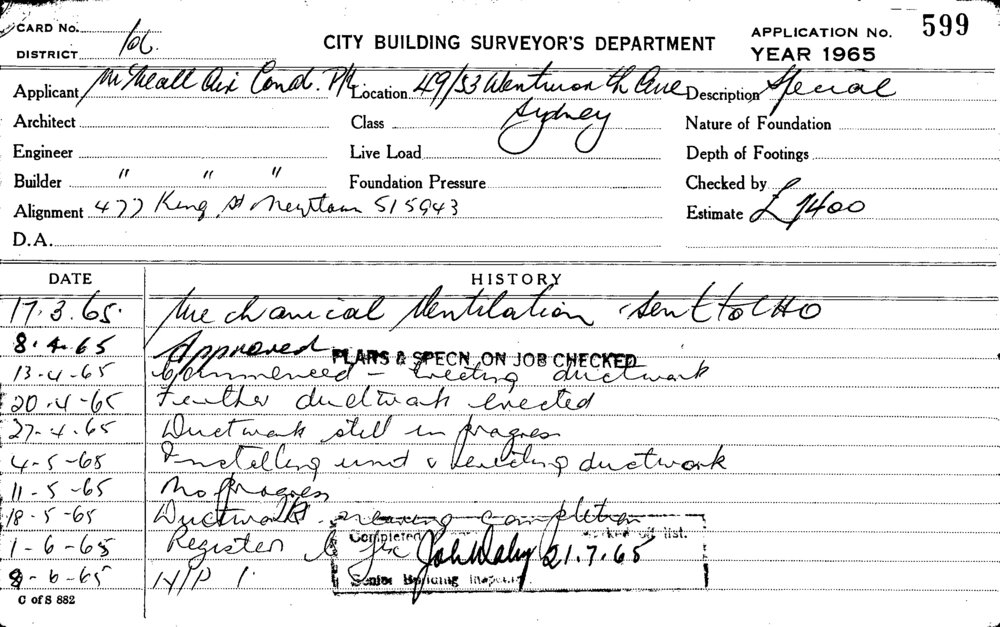 CARD No.
CITY BUILDING SURVEYOR'S DEPARTMENT
APPLICATION No. 599
DISTRICT
YEAR 1965
Applicant Air Cond. P/L Location 49/53 Wentworth Ave Description Special
Sydney
Architect Class Nature of Foundation
Engineer Live Load Depth of Footings
Builder " " " Foundation Pressure Checked by
Alignment 477 King St Newtown 515943 Estimate £ 1400
D.A.
DATE HISTORY
17.3.65. Mechanical Ventilation sent to CHO
8.4.65 Approved PLANS & SPECN. ON JOB CHECKED
13-4-65 Commenced - Erecting ductwork
20-4-65 Further ductwork erected
27-4-65 Ductwork still in progress
4-5-65 Installing unit & erecting ductwork
11-5-65 No progress
18-5-65 Ductwork nearing completion
1-6-65 Register
Completed marked off list.
21.7.65
8-6-65 N/P 1.
Senior Building Inspector
C of S 882